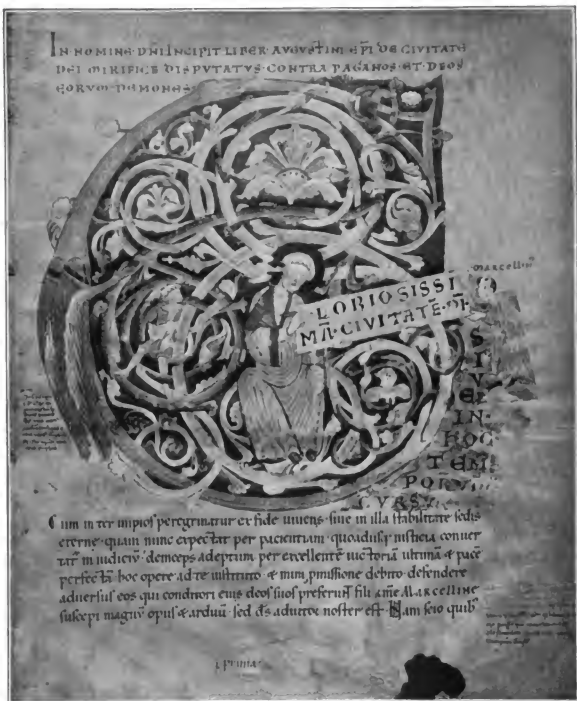 IN NOMINE DN̄I INCIPIT LIBER AVGVSTINI EP̄I DE CIVITATE
DEI MIRIFICE DISPVTATVS CONTRA PAGANOS ET DEOS
EORVM DEMONES
Marcellin
LORIOSISSI
MĀ·CIVITATĒ·DĪ
S
T
V
EL
IN
HOC
TEM
PORV
CVRSV
Cum inter impios peregrinatur ex fide uiuens· siue in illa stabilitate sedis
eterne· quam nunc expectat per pacientiam· quoadusq; iusticia conuer
tat᷑ in iudiciū· deinceps adeptum per excellentē uictoriā ultimā & pace
perfectā· hoc opere ad te instituto & mini pmissione debito· defendere
aduersus eos qui conditori eius deos suos preferunt fili ame Marcelline
suscepi magnū opus & arduū· sed ds̄ adiutor noster est· Nam scio quib᷒